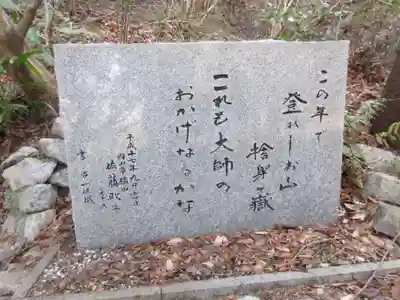 この年で
登れしお山
捨身ヶ嶽
これも大師の
おかげなるかな
平成十七年九月十六日